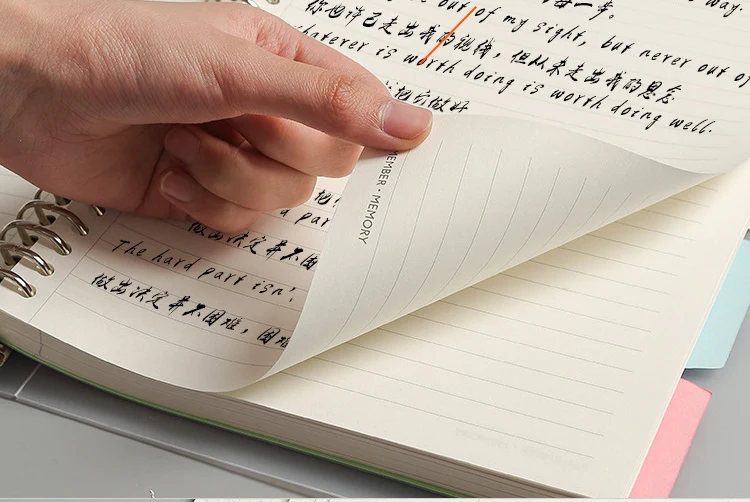 way.
每一步。
out of my sight, but never out of
你也许已走出我的视线，但从未走出我的思念
hatever is worth doing is worth doing well.
把它做好
EMBER · MEMORY
d par
做出决定并不困
The hard part isn'
做出决定并不困难，困